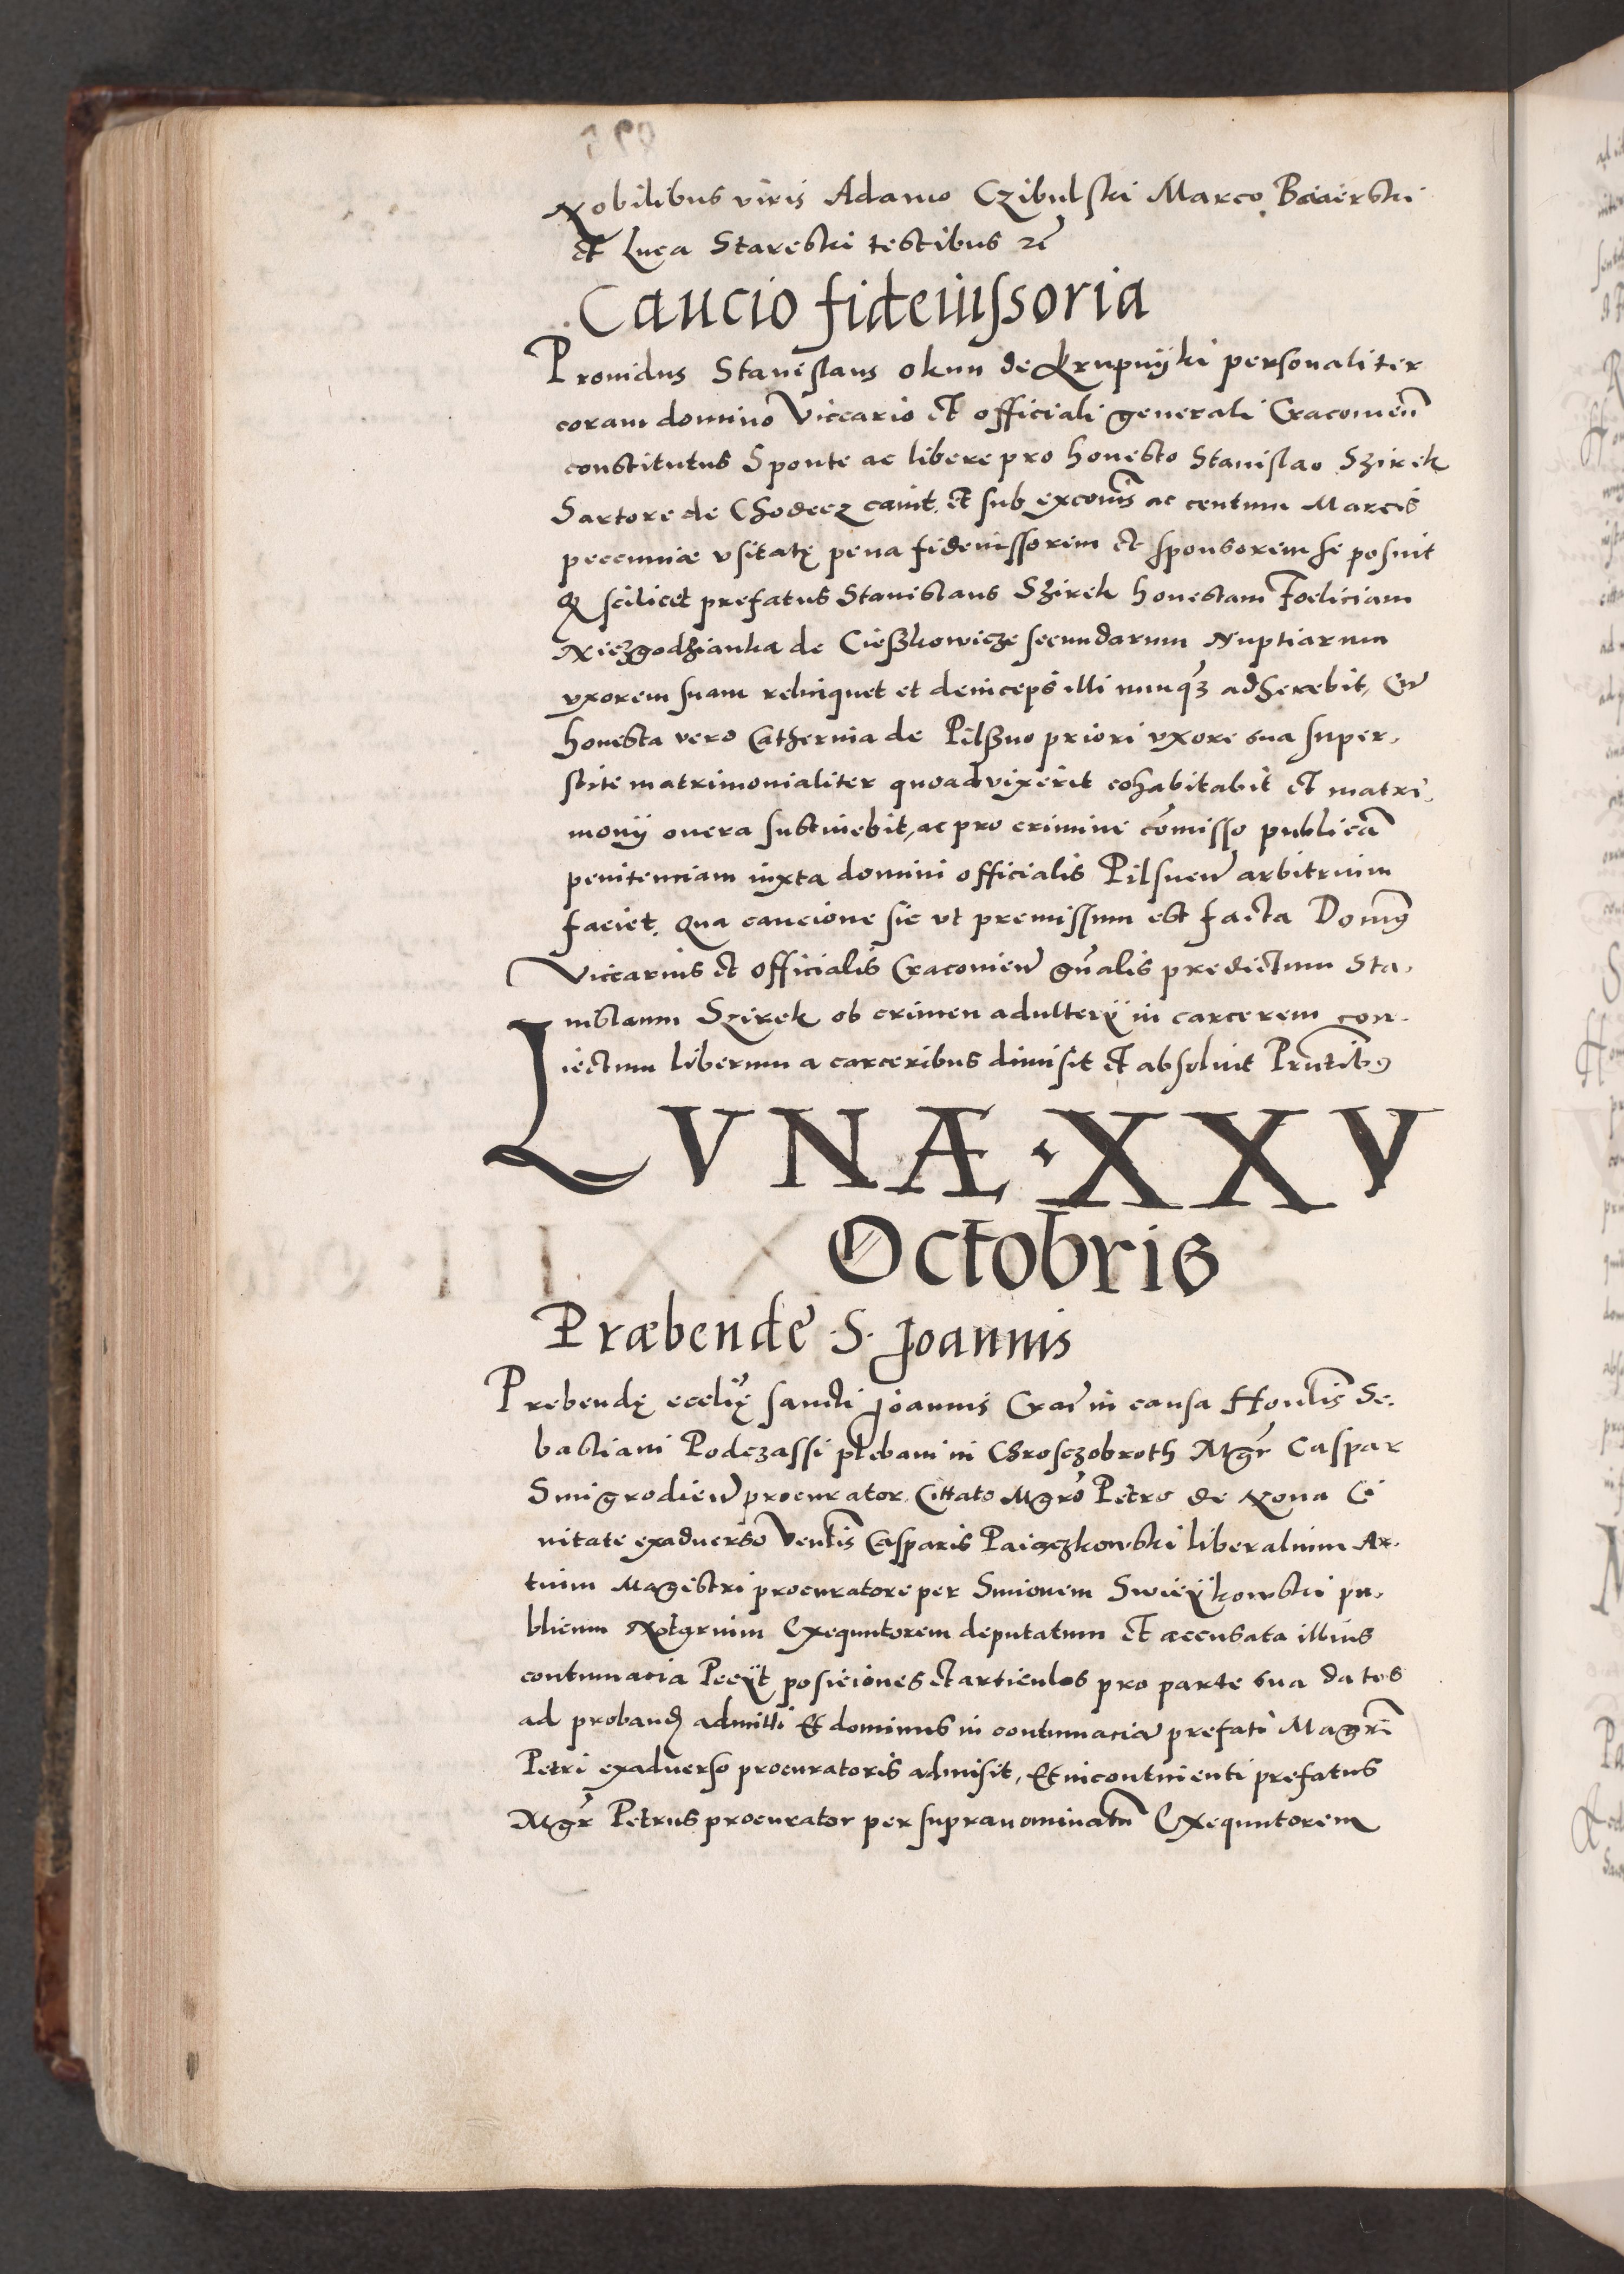 Nobilibus viris Adamo Czibulski Marco Baaierski
et Luca Stareski testibus rc̃
Caucio fideiussoria
Prouidus Stanislaus okun de Krupnÿki personaliter
coram domino Viccario et officiali generali Cracouieñ
constitutus Sponte ac libere pro honesto Stanislao Szirek
Sartore de Chodecz cauit, et sub excoĩs ac centum Marcis
peccuniæ vsitatę pena fideiussorem et sponsorem se posuit
Q scilicet prefatus Stanislaus Szirek honestam Foeliciam
Niezgodzianka de Cieszkowicze secundarum Nuptiarum
vxorem suam relinquet et deinceps illi nunq̃ʒ adherebit, Cũ
honesta vero Catherina de Pilszno priori vxore sua super,
stite matrimonialiter quoad vixerit cohabitabit et matri,
monij onera sustinebit, ac pro crimine cõmisso publicã
penitenciam iuxta domini officialis Pilsneñ arbitrium
faciet. Qua caucione sic vt premissum est facta Domĩꝰ
Viccarius et officialis Cracouieñ gñalis predictum Sta,
nislaum Szirek ob crimen adulterÿ in carcerem con-
iectum liberum a carceribus dimisit et absoluit Prñtibꝰ
LVNÆ · XXV
Octobris
Præbende · S · Joannis
Prebendę eccl̃ię sancti Joannis Crać in causa Honl̃is Se,
bastiani Podczassi plebani in Chrosczobroth Mgr̃ Caspar
Smigrodieñ procurator, Cittato Mgrõ Petro de Noua Ci
uitate exaduerso Venl̃is Casparis Paiączkowski liberalium Ar,
tium Magistri procuratore per Simonem Swieÿkowski pu,
blicum Notarium Exequutorem deputatum et accusata illius
contumacia Peciit posiciones et articulos pro parte sua datos
ad proband̃ admitti Et dominus in contumaciã prefati Magr̃i
Petri exaduerso procuratoris admisit, Et incontinenti prefatus
Mgr̃ Petrus procurator per supranominatũ Exequutorem